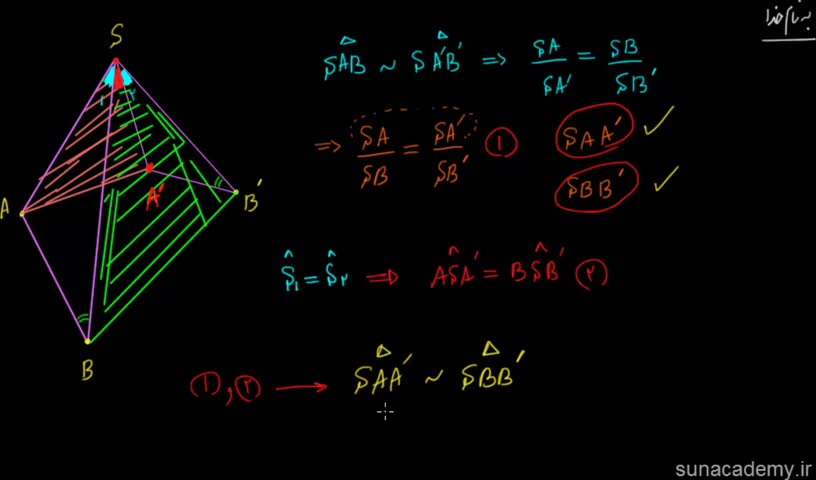 به نام خدا
S
SAB ~ SA'B' => SA/SA' = SB/SB'
=> SA/SB = SA'/SB' ① SAA' ✓
SBB' ✓
A A' B'
Ŝ₁ = Ŝ۲ => AŜA' = BŜB' ②
B
①,② → SAA' ~ SBB'
sunacademy.ir